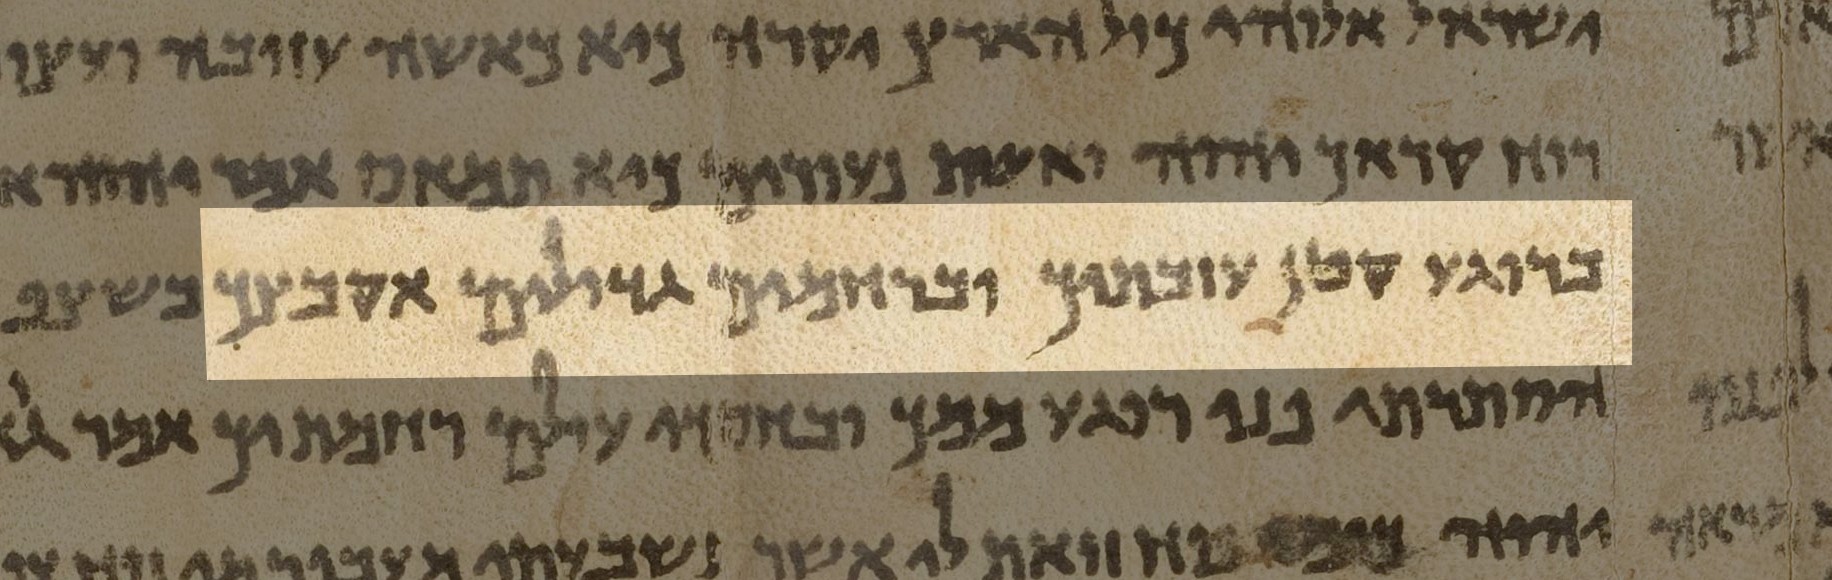 ישראל אלוהי כול הארץ יקרה כיא כאשה עזובה ועצו
רוח קראך יהוה ואשת נעורים כיא תמאס אמר יהוה א
ברוגע קטן עזבתיך וברחמים גדולים אקבצך בשצף
הסתרתי פני רגע ממך ובחסדי עולם רחמתיך אמר גו
יהוה כימי נוח זואת לי אשר נשבעתי מעבור מי נוח